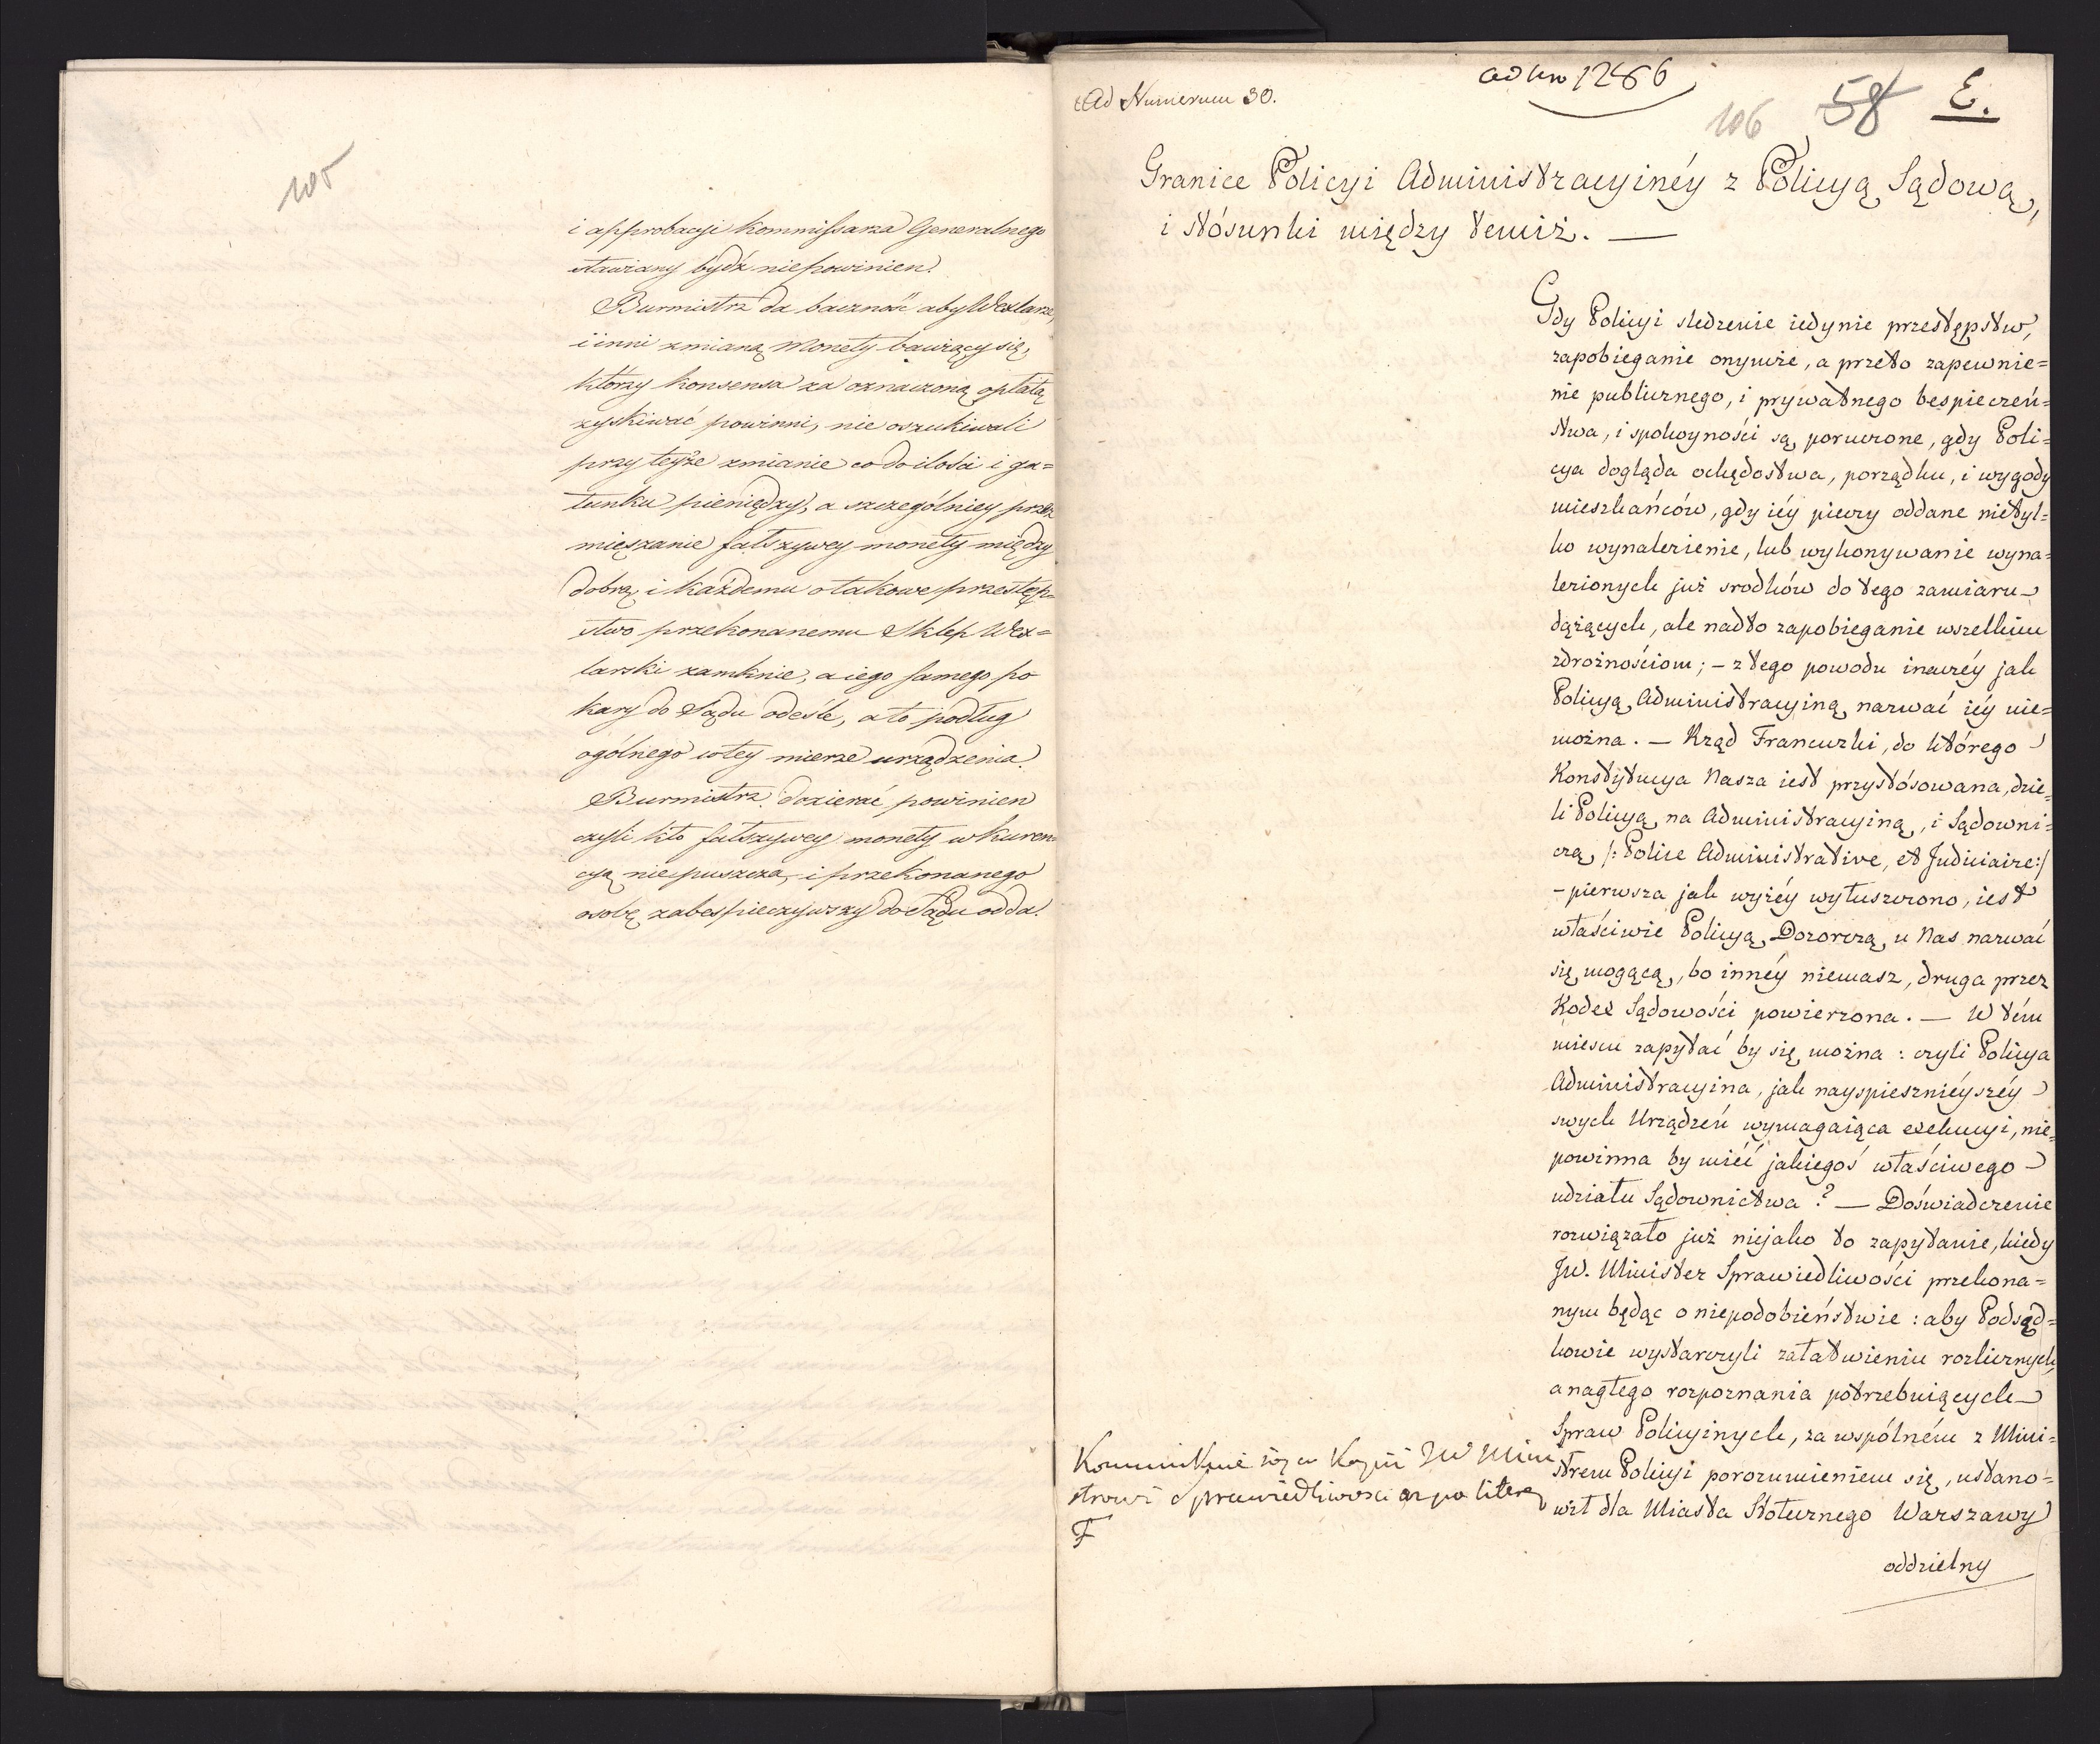 105
i approbacyi Kommissarza Generalnego
stawiany bydź niepowinien.
Burmistrz da baczność aby Wexlarze,
i inni zmianą Monety bawiący się,
którzy konsensa za oznaczoną opłatą
zyskiwać powinni, nie oszukiwali
przy teyże zmianie co do ilości i ga=
tunku pieniędzy, a szczególniey przez
mięszanie fałszywey monety między
dobrą i każdemu o takowe przestęp=
stwo przekonanemu Sklep Wex=
larski zamknie, a iego samego po
kary do Sądu odeśle, a to podług
ogólnego w tey mierze urządzenia.
Burmistrz dozierać powinien
czyli kto fałszywey monety w kuren
cyą niepuszcza, i przekonanego
osobę zabespieczywszy do Sądu odda.
Ad Numerum 30.
ad nro 1286
106 58 E.
Granice Policyi Administracyinéy z Policyą Sądową,
i stósunki między temiż. —
Gdy Policyi sledzenie iedynie przestępstw,
zapobieganie onymże, a przeto zapewnie=
nie publicznego, i prywatnego bespieczeń=
stwa, i spokoyności są poruczone, gdy Poli=
cya dogląda ochędostwa, porządku, i wygody
mieszkańców, gdy iéy pieczy oddane nietyl=
ko wynalezienie, lub wykonywanie wyna=
lezionych już srodków do tego zamiaru
dążących, ale nadto zapobieganie wszelkim
zdrożnościom; – z tego powodu inaczéy jak
Policyą Administracyiną nazwać iéy nie=
można. — Rząd Francuzki, do którego
Konstytucya Nasza iest przystósowana, dzie=
li Policyą na Administracyiną, i Sądowni=
czą /: Police Administrative, et Judiciaire :/
– pierwsza jak wyżéy wytuszczono, iest
właściwie Policyą Dozorczą u Nas nazwać
się mogącą, bo innéy niemasz, druga przez
Kodex Sądowości powierzona. — W tém
miescu zapytać by się można : czyli Policya
Administracyina, jak nayspiesznieyszéy
swych Urządzeń wymagaiąca exekucyi, nie=
powinna by mieć jakiegoś właściwego
udziału Sądownictwa ? — Doświadczenie
rozwiązało już niejako to zapytanie, kiedy
JW. Minister Sprawiedliwości przekona=
nym będąc o niepodobieństwie : aby Podsęd=
kowie wystarczyli załatwieniu rozlicznych,
a nagłego rozpoznania potrzebuiących
Spraw Policyinych, za wspólném z Mini=
strem Policyi porozumieniem się, ustano=
wił dla Miasta Stołecznego Warszawy
oddzielny
Kommunikuie się w Kopii JW Mini
strowi Sprawiedliwosci po literą
F